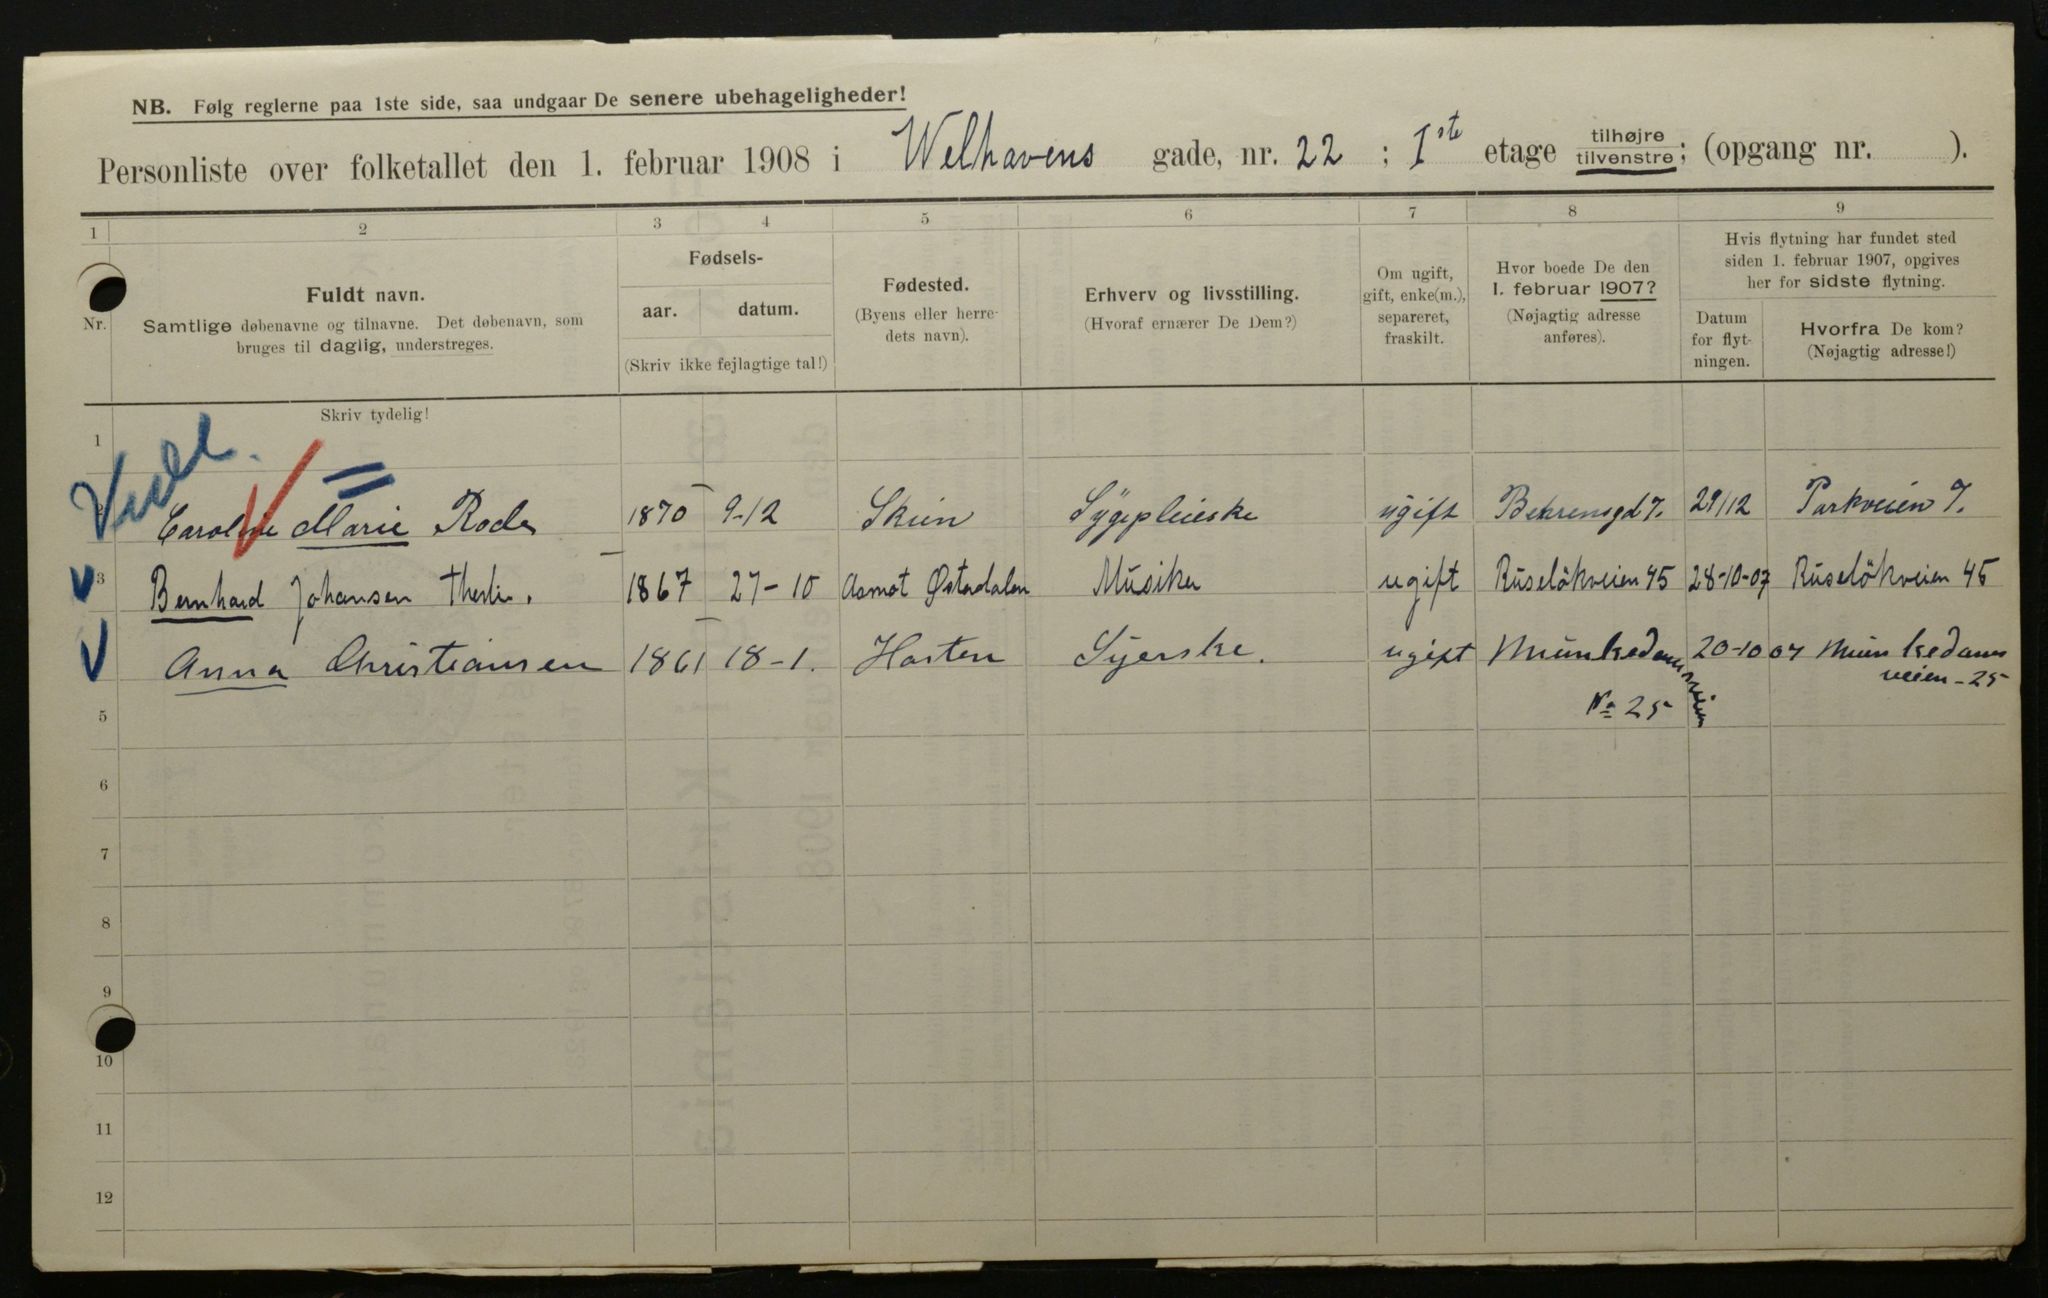 NB. Følg reglerne paa 1ste side, saa undgaar De senere ubehageligheder!
Personliste over folketallet den 1. februar 1908 i Welhavens gade, nr. 22 ; 1ste etage tilhøjre tilvenstre; (opgang nr. ).
1 2 3 4 5 6 7 8 9
Nr.
Fuldt navn.
Samtlige døbenavne og tilnavne. Det døbenavn, som
bruges til daglig, understreges.
Fødsels-
aar. datum.
(Skriv ikke fejlagtige tal!)
Fødested.
(Byens eller herre-
dets navn).
Erhverv og livsstilling.
(Hvoraf ernærer De Dem?)
Om ugift,
gift, enke(m.),
separeret,
fraskilt.
Hvor boede De den
1. februar 1907?
(Nøjagtig adresse
anføres).
Hvis flytning har fundet sted
siden 1. februar 1907, opgives
her for sidste flytning.
Datum
for flyt-
ningen.
Hvorfra De kom?
(Nøjagtig adresse!)
Skriv tydelig!
1
Caroline Marie Rode 1870 9-12 Skien Sygepleieske ugift Behrensgd 7. 29/12 Parkveien 7.
3 Bernhard Johansen 1867 27-10 Aamot Østerdalen Musiker ugift Ruseløkveien 45 28-10-07 Ruseløkveien 45
Anna Christiansen 1861 18-1. Horten Syerske. ugift Munkedamsveien 20-10 07 Munkedams
veien - 25
No 25
5
6
7
8
9
10
11
12